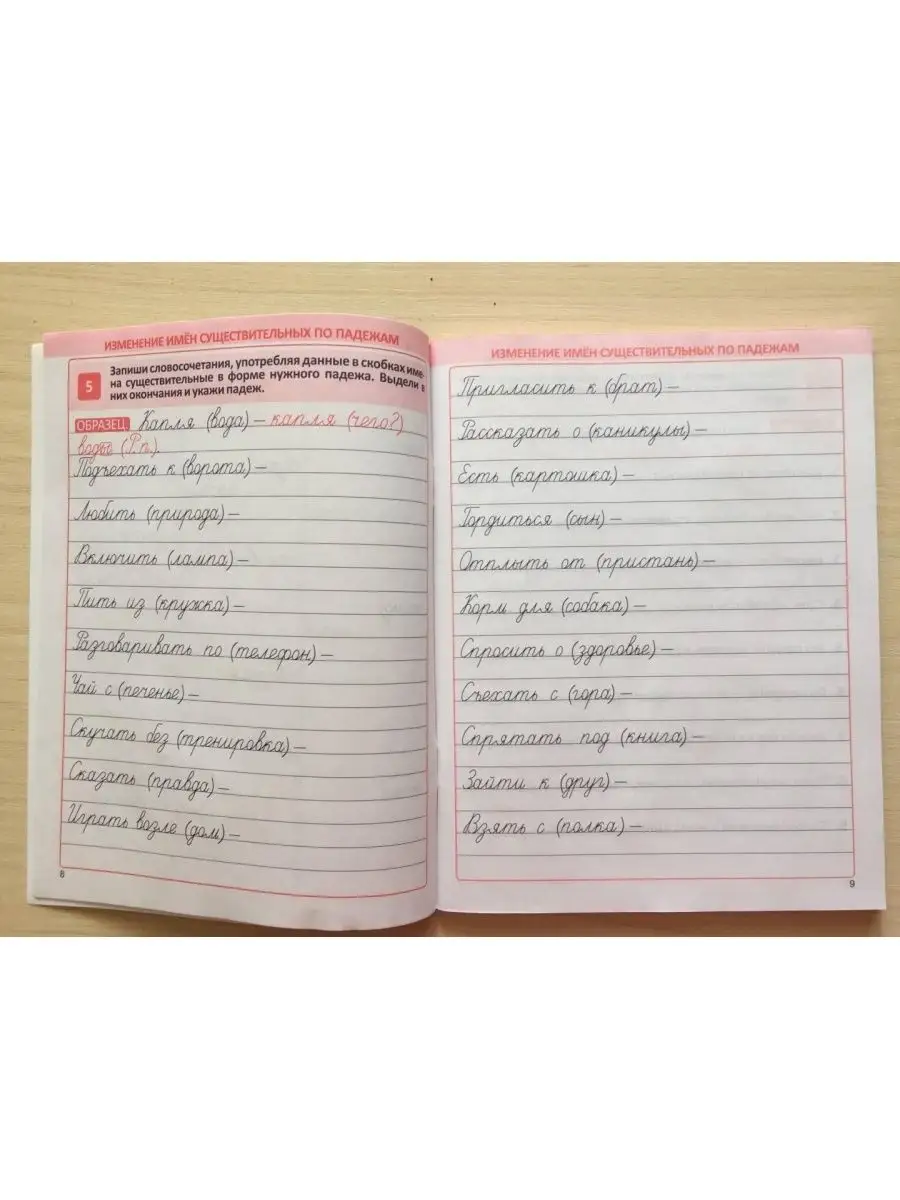 ИЗМЕНЕНИЕ ИМЁН СУЩЕСТВИТЕЛЬНЫХ ПО ПАДЕЖАМ
5
Запиши словосочетания, употребляя данные в скобках име-
на существительные в форме нужного падежа. Выдели в
них окончания и укажи падеж.
ОБРАЗЕЦ Капля (вода) – капля (чего?)
воды (Р.п.).
Подъехать к (ворота) –
Любить (природа) –
Включить (лампа) –
Пить из (кружка) –
Разговаривать по (телефон) –
Чай с (печенье) –
Скучать без (тренировка) –
Сказать (правда) –
Играть возле (дом) –
8
ИЗМЕНЕНИЕ ИМЁН СУЩЕСТВИТЕЛЬНЫХ ПО ПАДЕЖАМ
Пригласить к (брат) –
Рассказать о (каникулы) –
Есть (картошка) –
Гордиться (сын) –
Отплыть от (пристань) –
Корм для (собака) –
Спросить о (здоровье) –
Съехать с (гора) –
Спрятать под (книга) –
Зайти к (друг) –
Взять с (полка) –
9